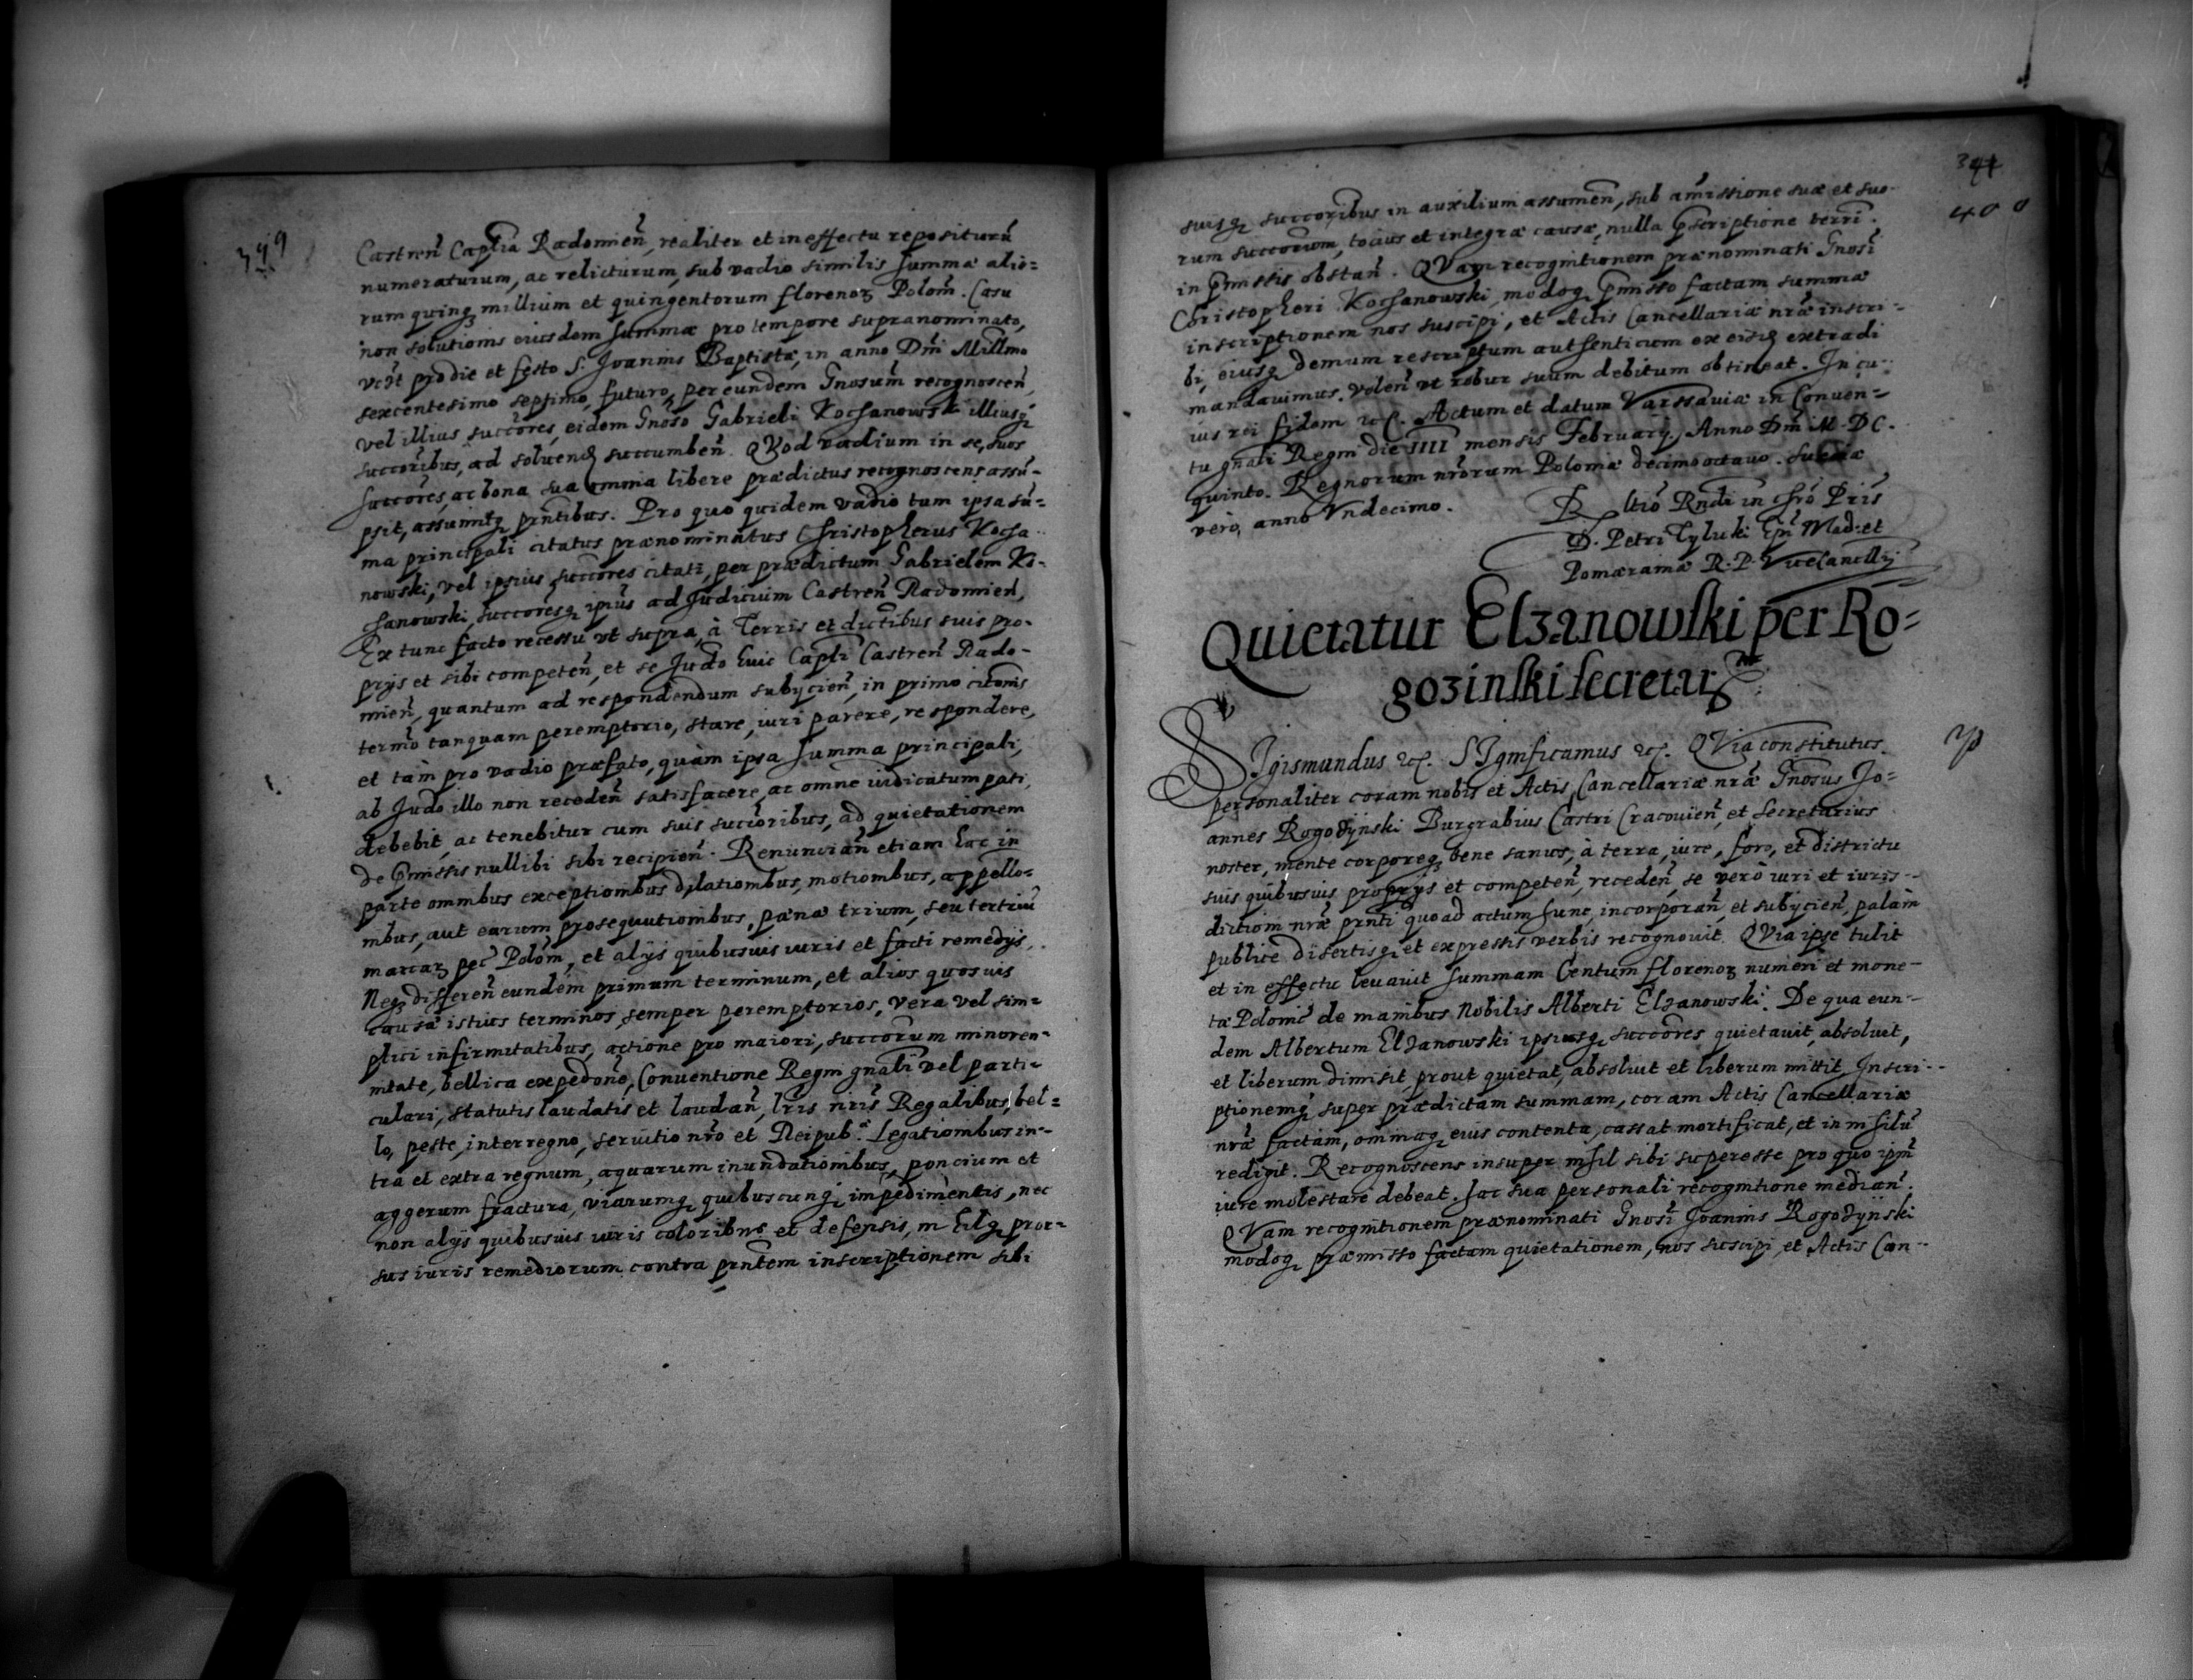 399
Castren̄ Capt̄lia Radomien̄, realiter et in effectu repositurū
numeraturum, ac relicturum, sub vadio similis summæ alio=
rum quinqꝫ millium et quingentorum florenoꝝ Polon̄. Casu
non solutionis eiusdem summæ pro tempore supranominato,
vct̄ pro die et festo S. Joannis Baptistæ, in anno Dn̄i Millmo
sexcentesimo septimo, futuro, per eundem Gnosum̄ recognoscen̄,
vel illius succōres, eidem Gnōso Gabrieli Kochanowski illiusqꝫ
succōribus, ad soluend̄ succumben̄. QVod vadium in se, suos
succōres, ac bona sua omnia libere prædictus recognoscens assū-
psit, assumitqꝫ prn̄tibus. Pro quo quidem vadio tum ipsa sū=
ma principali citatus prænominatus Christopherus Kocha-
nowski, vel ipsius succōres citati, per prædictum Gabrielem Ko-
chanowski, succōresqꝫ ipīus ad Judicium Castren̄ Radomien̄,
Ex tunc facto recessu vt supra, à Terris et dictībus suis pro-
prijs et sibi competen̄, et se Judō huic Captī Castren̄ Rado-
mien̄, quantum ad respondendum subijcien̄, in primo citōnis
termō tanquam peremptorio, stare, iuri parere, respondere,
et tam pro vadio præfato, quàm ipsa summa principali,
ab Judō illo non receden̄ satisfacere, ac omne iudicatum pati,
debebit, ac tenebitur cum suis succōribus, ad quietationem
de p̄missis nullibi sibi recipien̄. Renuncian̄ etiam hac in
parte omnibus exceptionibus dilationibus, motionibus, appello=
nibus, aut earum prosequutionibus, pæna trium, seu tertriū
marcaꝝ pec̄ Polon̄, et alijs quibusuis iuris et facti remedijs.
Neqꝫ differen̄ eundem primum terminum, et alios quosuis
causæ istius terminos, semper peremptorios, vera vel sim=
plici infirmitatibus, actione pro maiori, succōrum minoren-
nitate, bellica expedōne, Conuentione Regni gnali vel parti=
culari, statutis laudatis et laudan̄, lr̄is nr̄is Regalibus, bel=
lo, peste, interregno, seruitio nr̄o et Reipub. Legationibus in-
tra et extra regnum, aquarum inundationibus, poncium et
aggerum fractura, viarumqꝫ quibuscunqꝫ impedimentis, nec
non alijs quibusuis iuris coloribus et defensis, nihilqꝫ pror=
sus iuris remediorum contra prn̄tem inscriptionem sibi
400
suisqꝫ succōribus in auxilium assumen̄, sub amissione suæ et suo-
rum succōrum, tocius et integræ causæ, nulla p̄scriptione terrī.
in p̄missis obstan̄. QVam recognitionem prænominati Gnosi
Christopheri Kochanowski, modoqꝫ p̄misso factam summæ
inscriptionem nos suscipi, et Actis Cancellariæ nr̄æ inscri-
bi, eiusqꝫ demum rescriptum authenticum ex eisd̄ extradi
mandauimus. Volen̄ vt robur suum debitum obtineat. In cu-
ius rei fidem etc. Actum et datum Varssauiæ in Conuen=
tu gnali Regni die IIII mensis February. Anno Dn̄i M. DC.
quinto. Regnorum nr̄orum Poloniæ decimo octauo. Sueciæ
vero, anno Vndecimo.
Rltiō Rndi in Chrō Pris
D. Petri Tyluki Epī Mad: et
Pomæraniæ R. P. ViceCancllrij
Quietatur Elzanowski per Ro=
gozinski secretar.
SIgismundus etc. SIgnificamus etc. QVia constitutus
personaliter coram nobis et Actis Cancellariæ nr̄æ Gnosus Jo=
annes Rogozÿnski Burgrabius Castri Cracouien̄, et Secretarius
noster, mente corporeqꝫ bene sanus, à terra, iure, foro, et districtu
suis quibusuis proprijs et competen̄, receden̄, se verò iuri et iuris-
dictioni nr̄æ prn̄ti quo ad actum hunc, incorporan̄ et subijcien̄, palàm
publice disertisqꝫ et expressis verbis recognouit. QVia ipse tulit
et in effectu leuauit summam Centum florenoꝝ numeri et mone-
tæ Polonic̄ de manibus Nobilis Alberti Elzanowski. De qua eun-
dem Albertum Elzanowski ipsiusqꝫ succōres quietauit, absoluit,
et liberum dimisit, prout quietat, absoluit et liberum mittit, Inscri-
ptionemqꝫ super prædictam summam, coram Actis Cancellariæ
nr̄æ factam, omniaqꝫ eius contenta, cassat mortificat, et in nihilū
redigit. Recognoscens insuper nihil sibi superesse pro quo ipm̄
iure molestare debeat. hac sua personali recognitione median̄.
QVam recognitionem prænominati Gnosi Joannis Rogozÿnski
modoqꝫ præmisso factam quietationem, nos suscipi, et Actis Can-